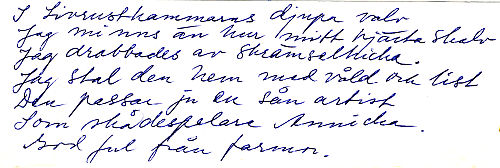 I Livrustkammarens djupa valv
Jag minns än hur mitt hjärta skalv
Jag drabbades av skrämselhicka.
Jag stal den hem med våld och list
Den passar ju en sån artist
Som skådespelare Annicka.
God jul från farmor.